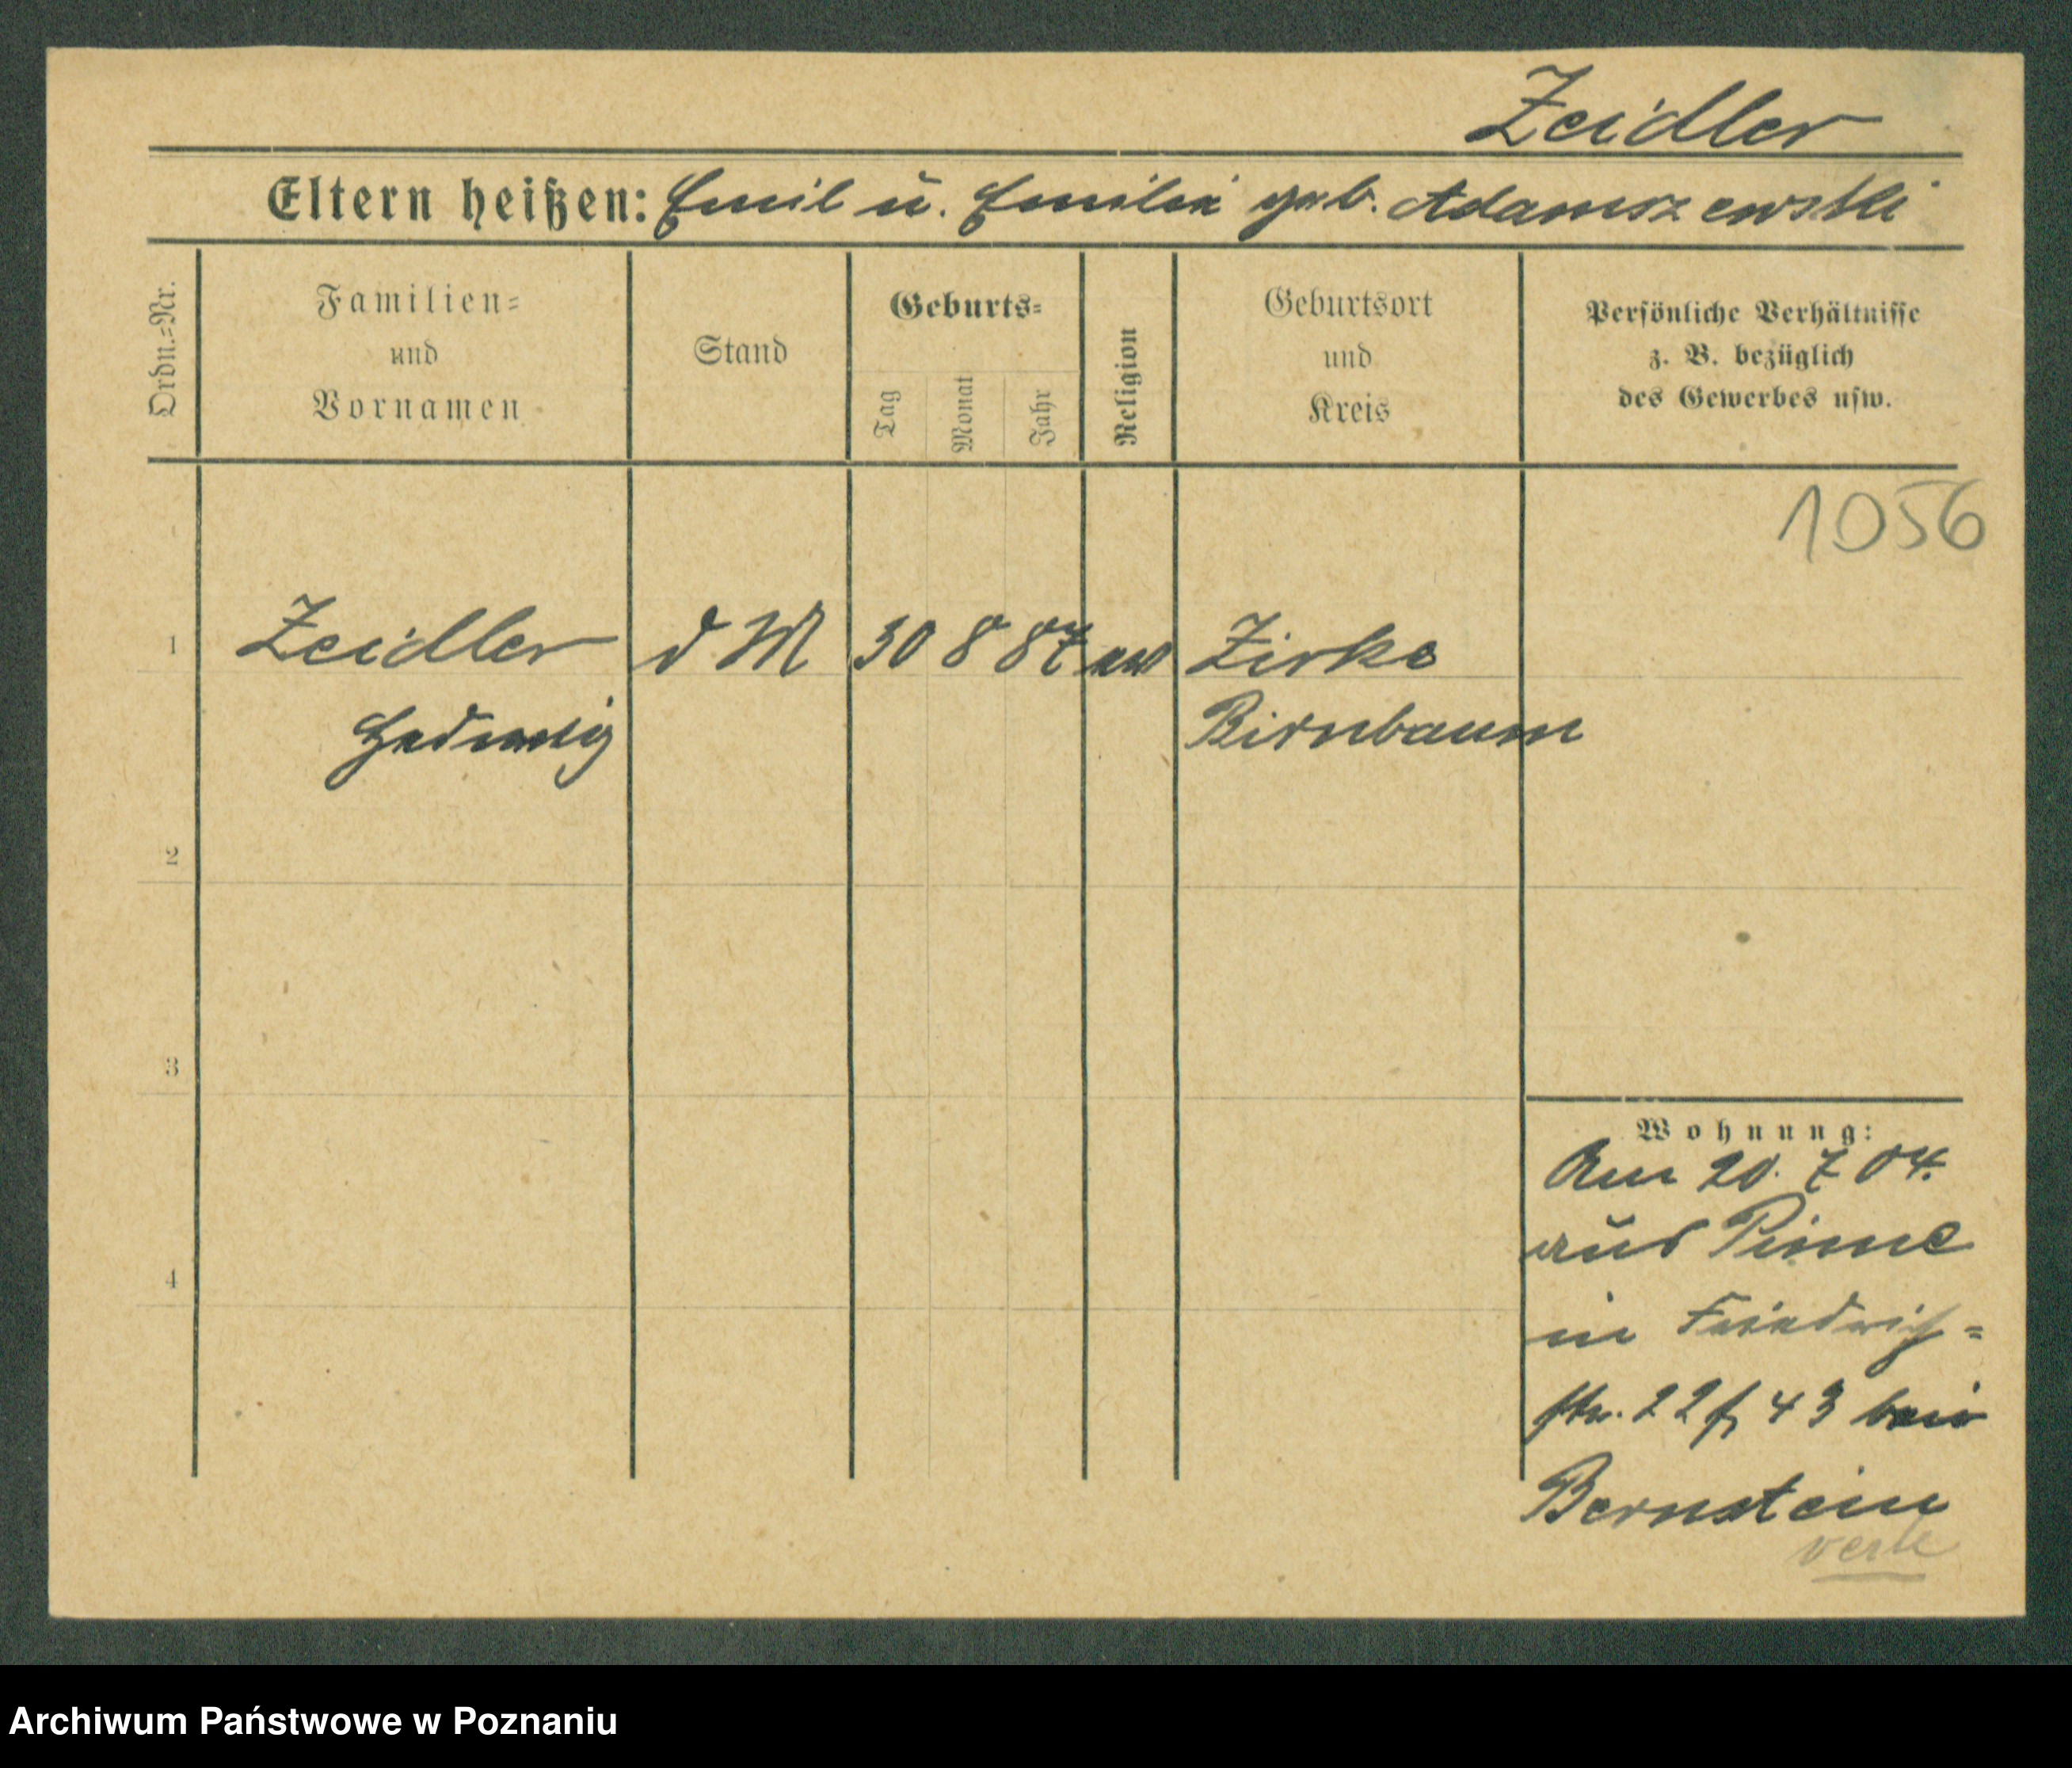 Zeidler
Eltern heißen: Emil u. Emilie geb. Adamszewski
Ordn.=Nr.
Familien=
und
Vornamen
Stand
Geburts=
Tag
Monat
Jahr
Religion
Geburtsort
und
Kreis
Persönliche Verhältnisse
z. B. bezüglich
des Gewerbes usw.
1056
1 Zeidler d M 30 8 87 ew Zirke
Hedwig Birnbaum
2
3
4
Wohnung:
Am 20. 7 04.
aus Pinne
in Friedrich=
str. 22 43 bei
Bernstein
Archiwum Państwowe w Poznaniu